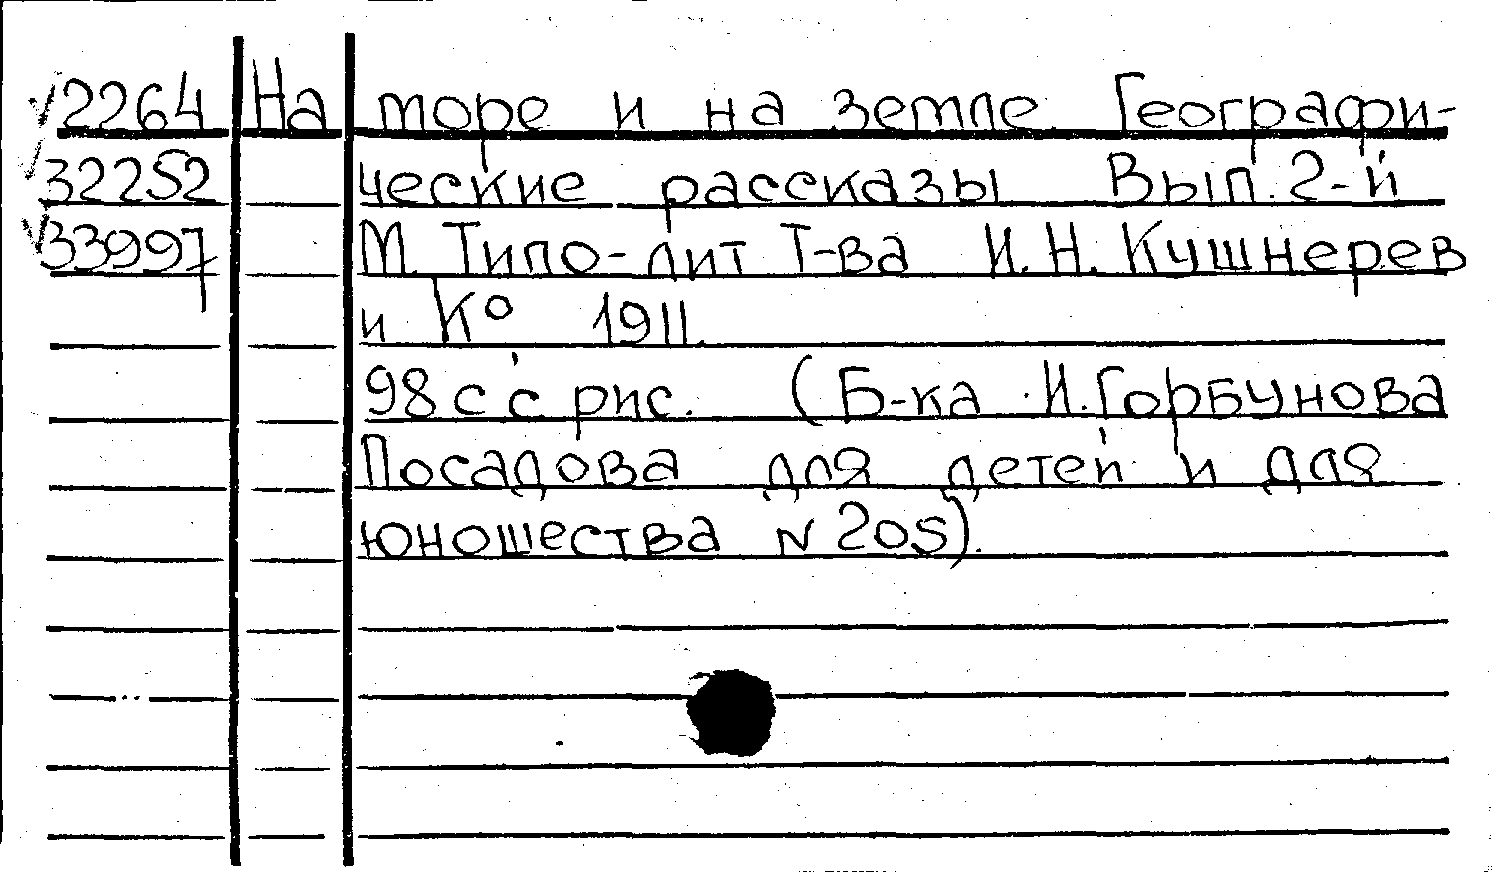 2264 На море и на земле. Географи-
32252 ческие рассказы Вып. 2-й
33997 М. Типо-лит Т-ва И.Н. Кушнерев
и К° 1911.
98 с с рис. (Б-ка И.Горбунова
Посадова для детей и для
юношества N 205).